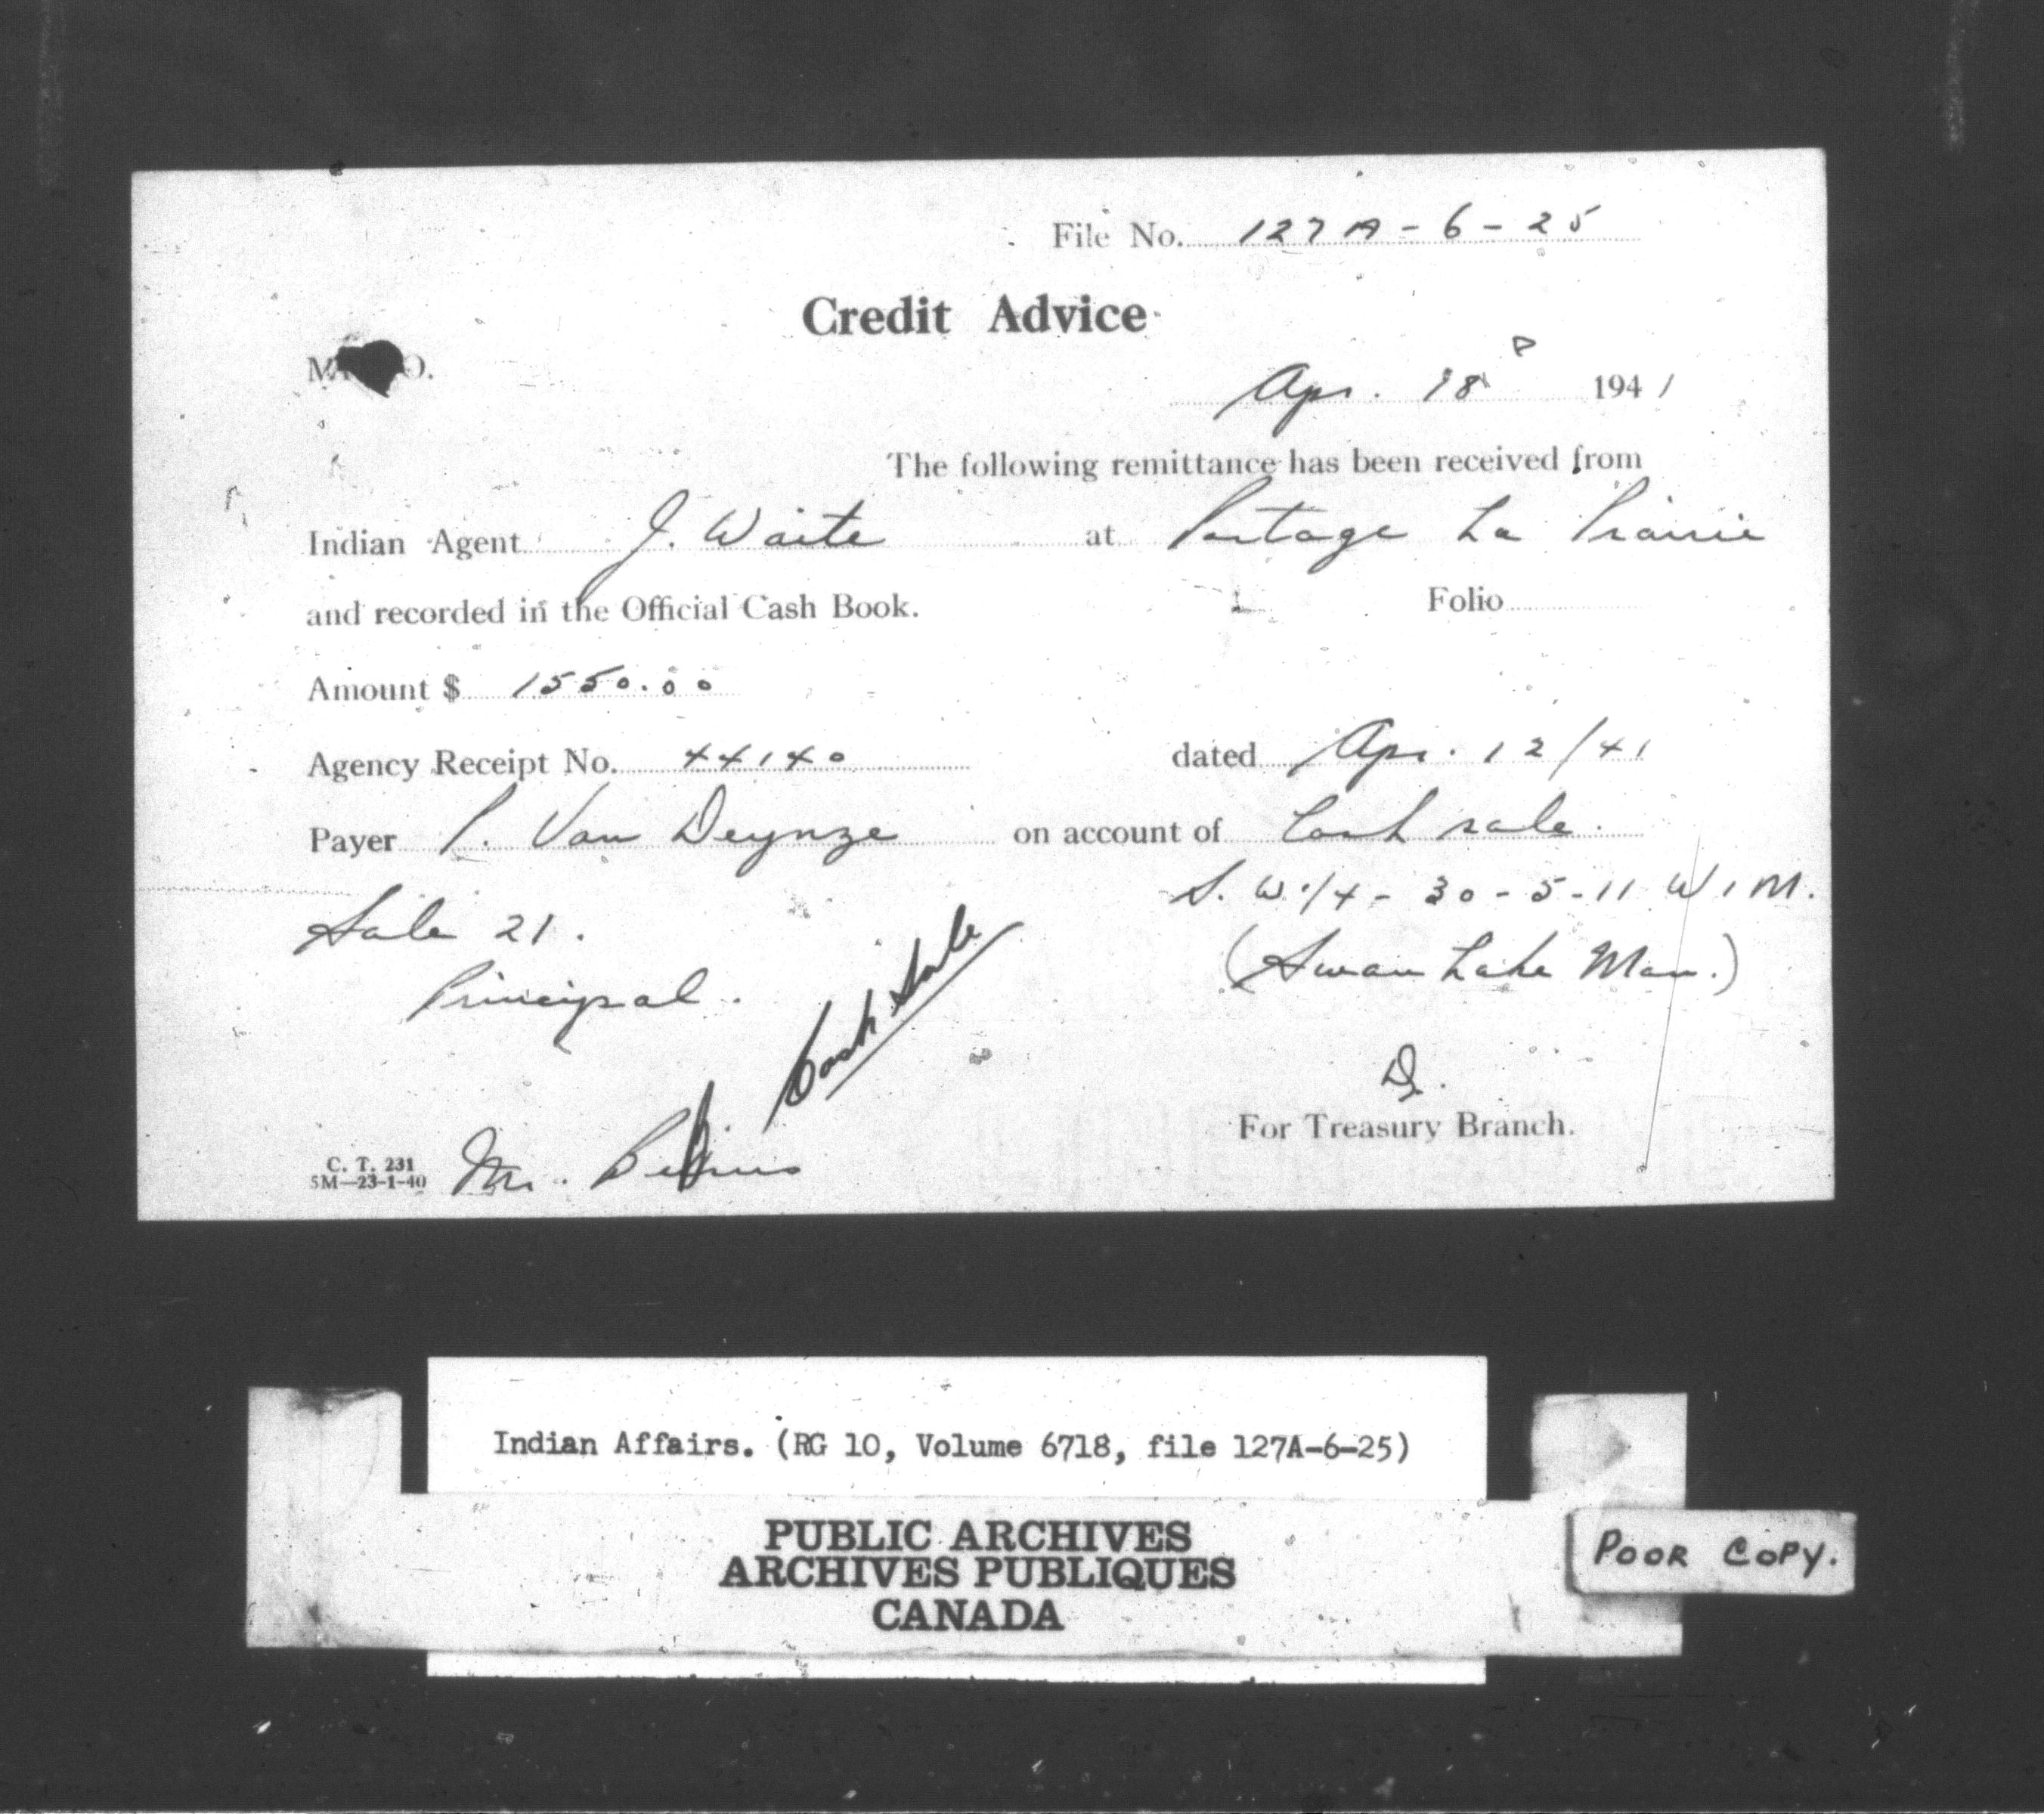 File No. 127A-6-25
Credit Advice
Apr. 18 1941
The following remittance has been received from
Indian Agent J. Waite at Portage La Prairie
and recorded in the Official Cash Book. Folio
Amount $ 1550.00
Agency Receipt No. 44140 dated Apr. 12/41
Payer P. Van Deynze on account of Cash sale.
S.W.1/4-30-5-11 W1M.
Sale 21.
(Swan Lake Man.)
Principal.
Cash Sale
D.
For Treasury Branch.
C. T. 231
5M—23-1-40
Mr.
Indian Affairs. (RG 10, Volume 6718, file 127A-6-25)
PUBLIC ARCHIVES
ARCHIVES PUBLIQUES
CANADA
POOR COPY.